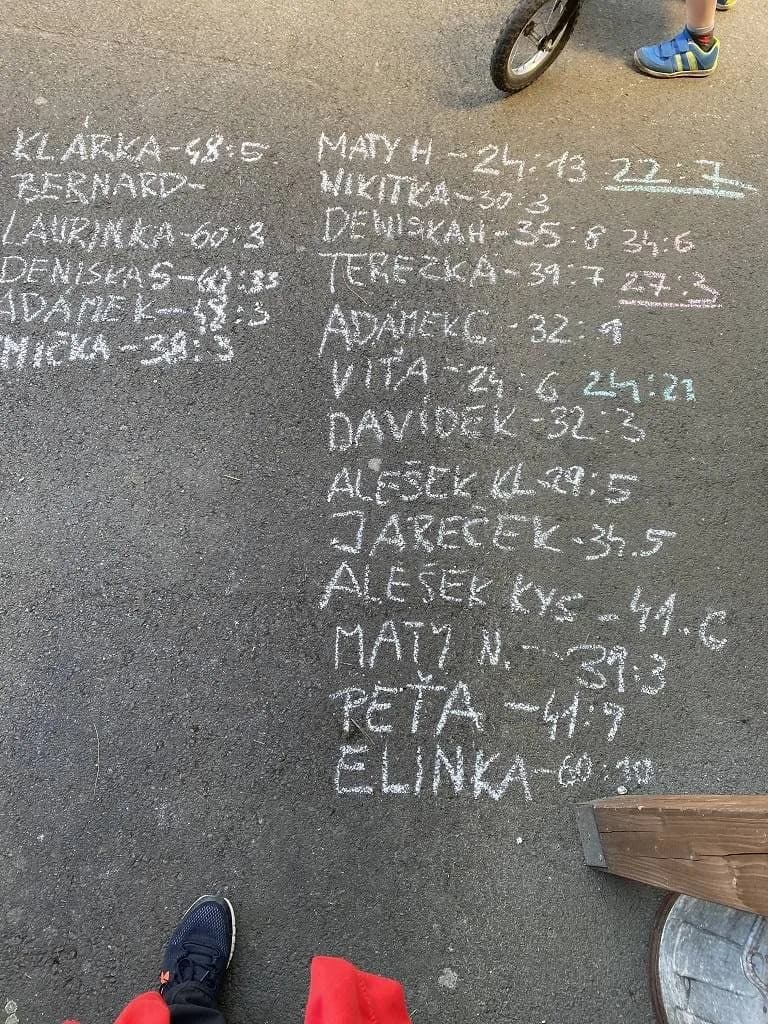 KLÁRKA-48:5
BERNARD-
LAURINKA-60:3
DENISKA S-60:33
ADÁMEK-48:3
MIČKA-39:3
MATY H - 24:13 22:7
NIKITKA-30:3
DENISKA H-35:8 34:6
TEREZKA-39:7 27:3
ADÁMEK C-32:1
VÍŤA-24:6 24:21
DAVÍDEK-32:3
ALEŠEK KL-29:5
JAREČEK-34.5
ALEŠEK KYS-41.6
MATY N.-39:3
PEŤA-41:9
ELINKA-60:30